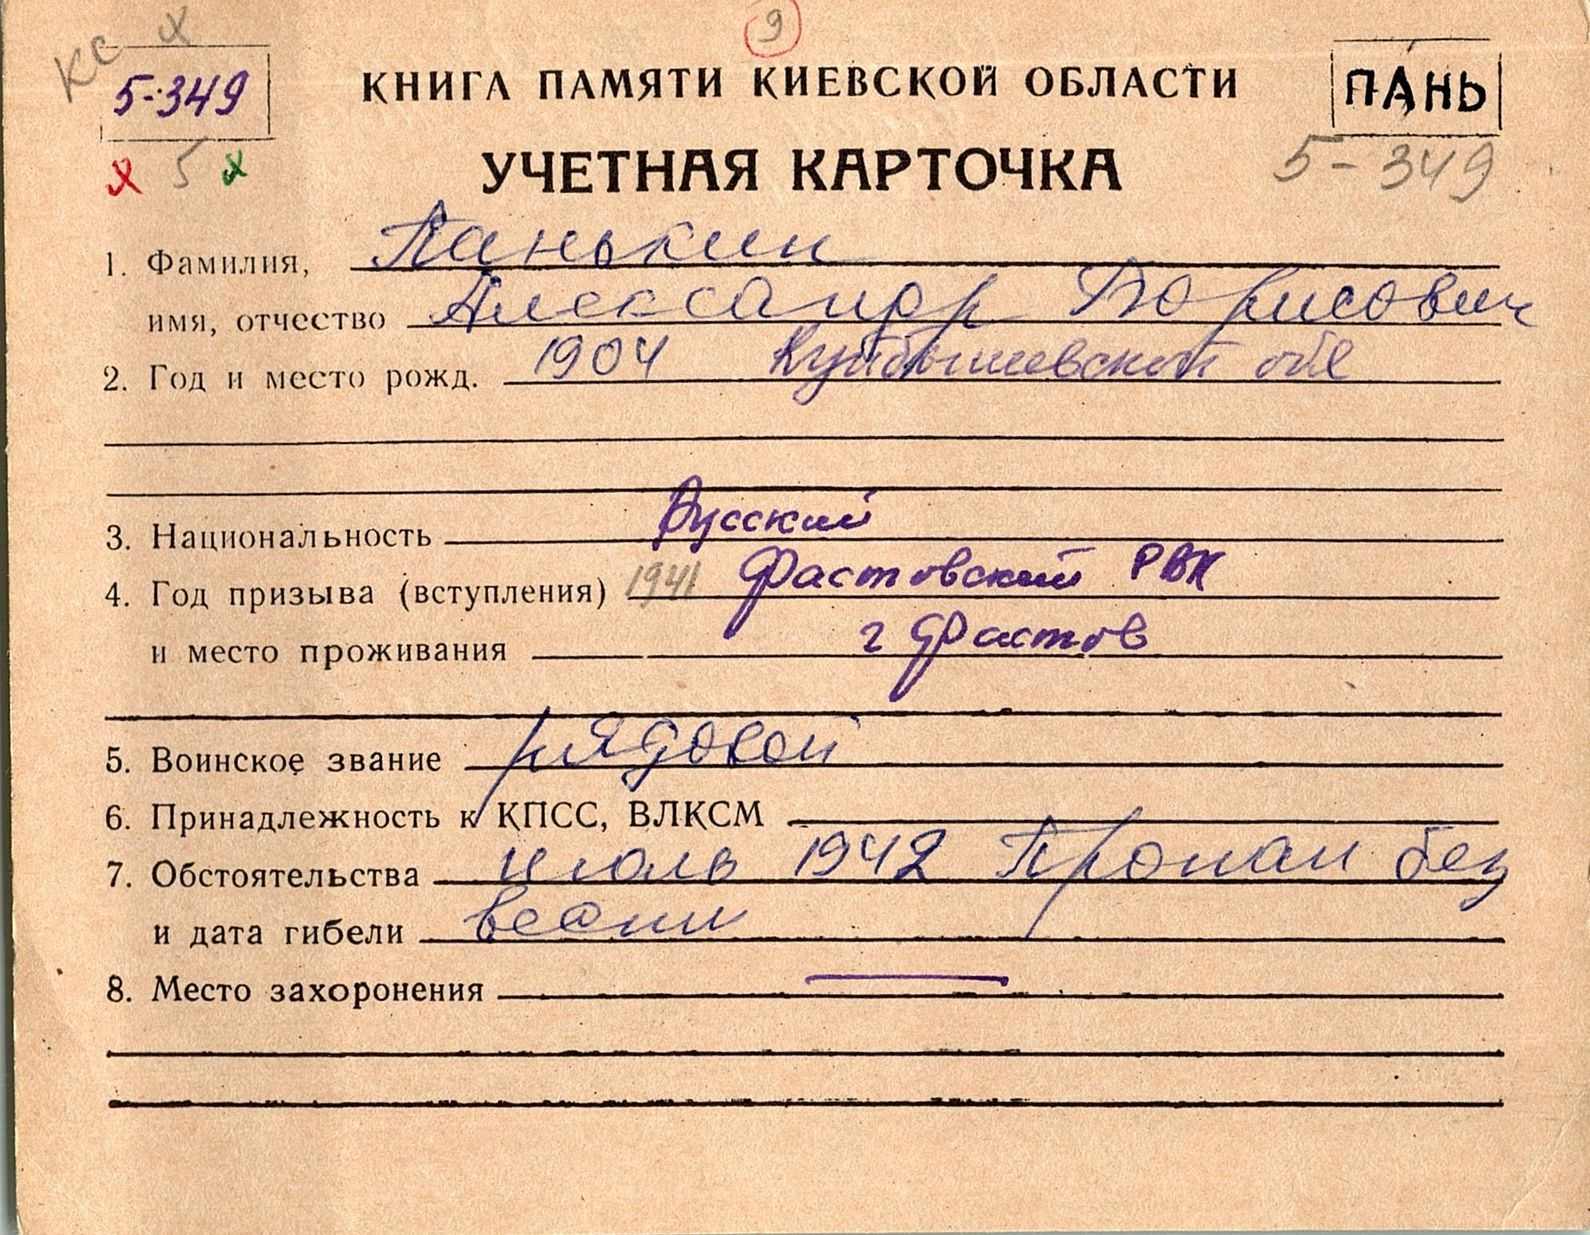 КС х
9
5-349
КНИГА ПАМЯТИ КИЕВСКОЙ ОБЛАСТИ
ПАНЬ
х 5 х
УЧЕТНАЯ КАРТОЧКА
5-349
1. Фамилия, Панькин
имя, отчество Александр Борисович
2. Год и место рожд. 1904 Куйбышевской обл
3. Национальность Русский
4. Год призыва (вступления) 1941 Фастовский РВК
и место проживания г Фастов
5. Воинское звание рядовой
6. Принадлежность к КПСС, ВЛКСМ
7. Обстоятельства июль 1942 Пропал без
и дата гибели вести
8. Место захоронения —